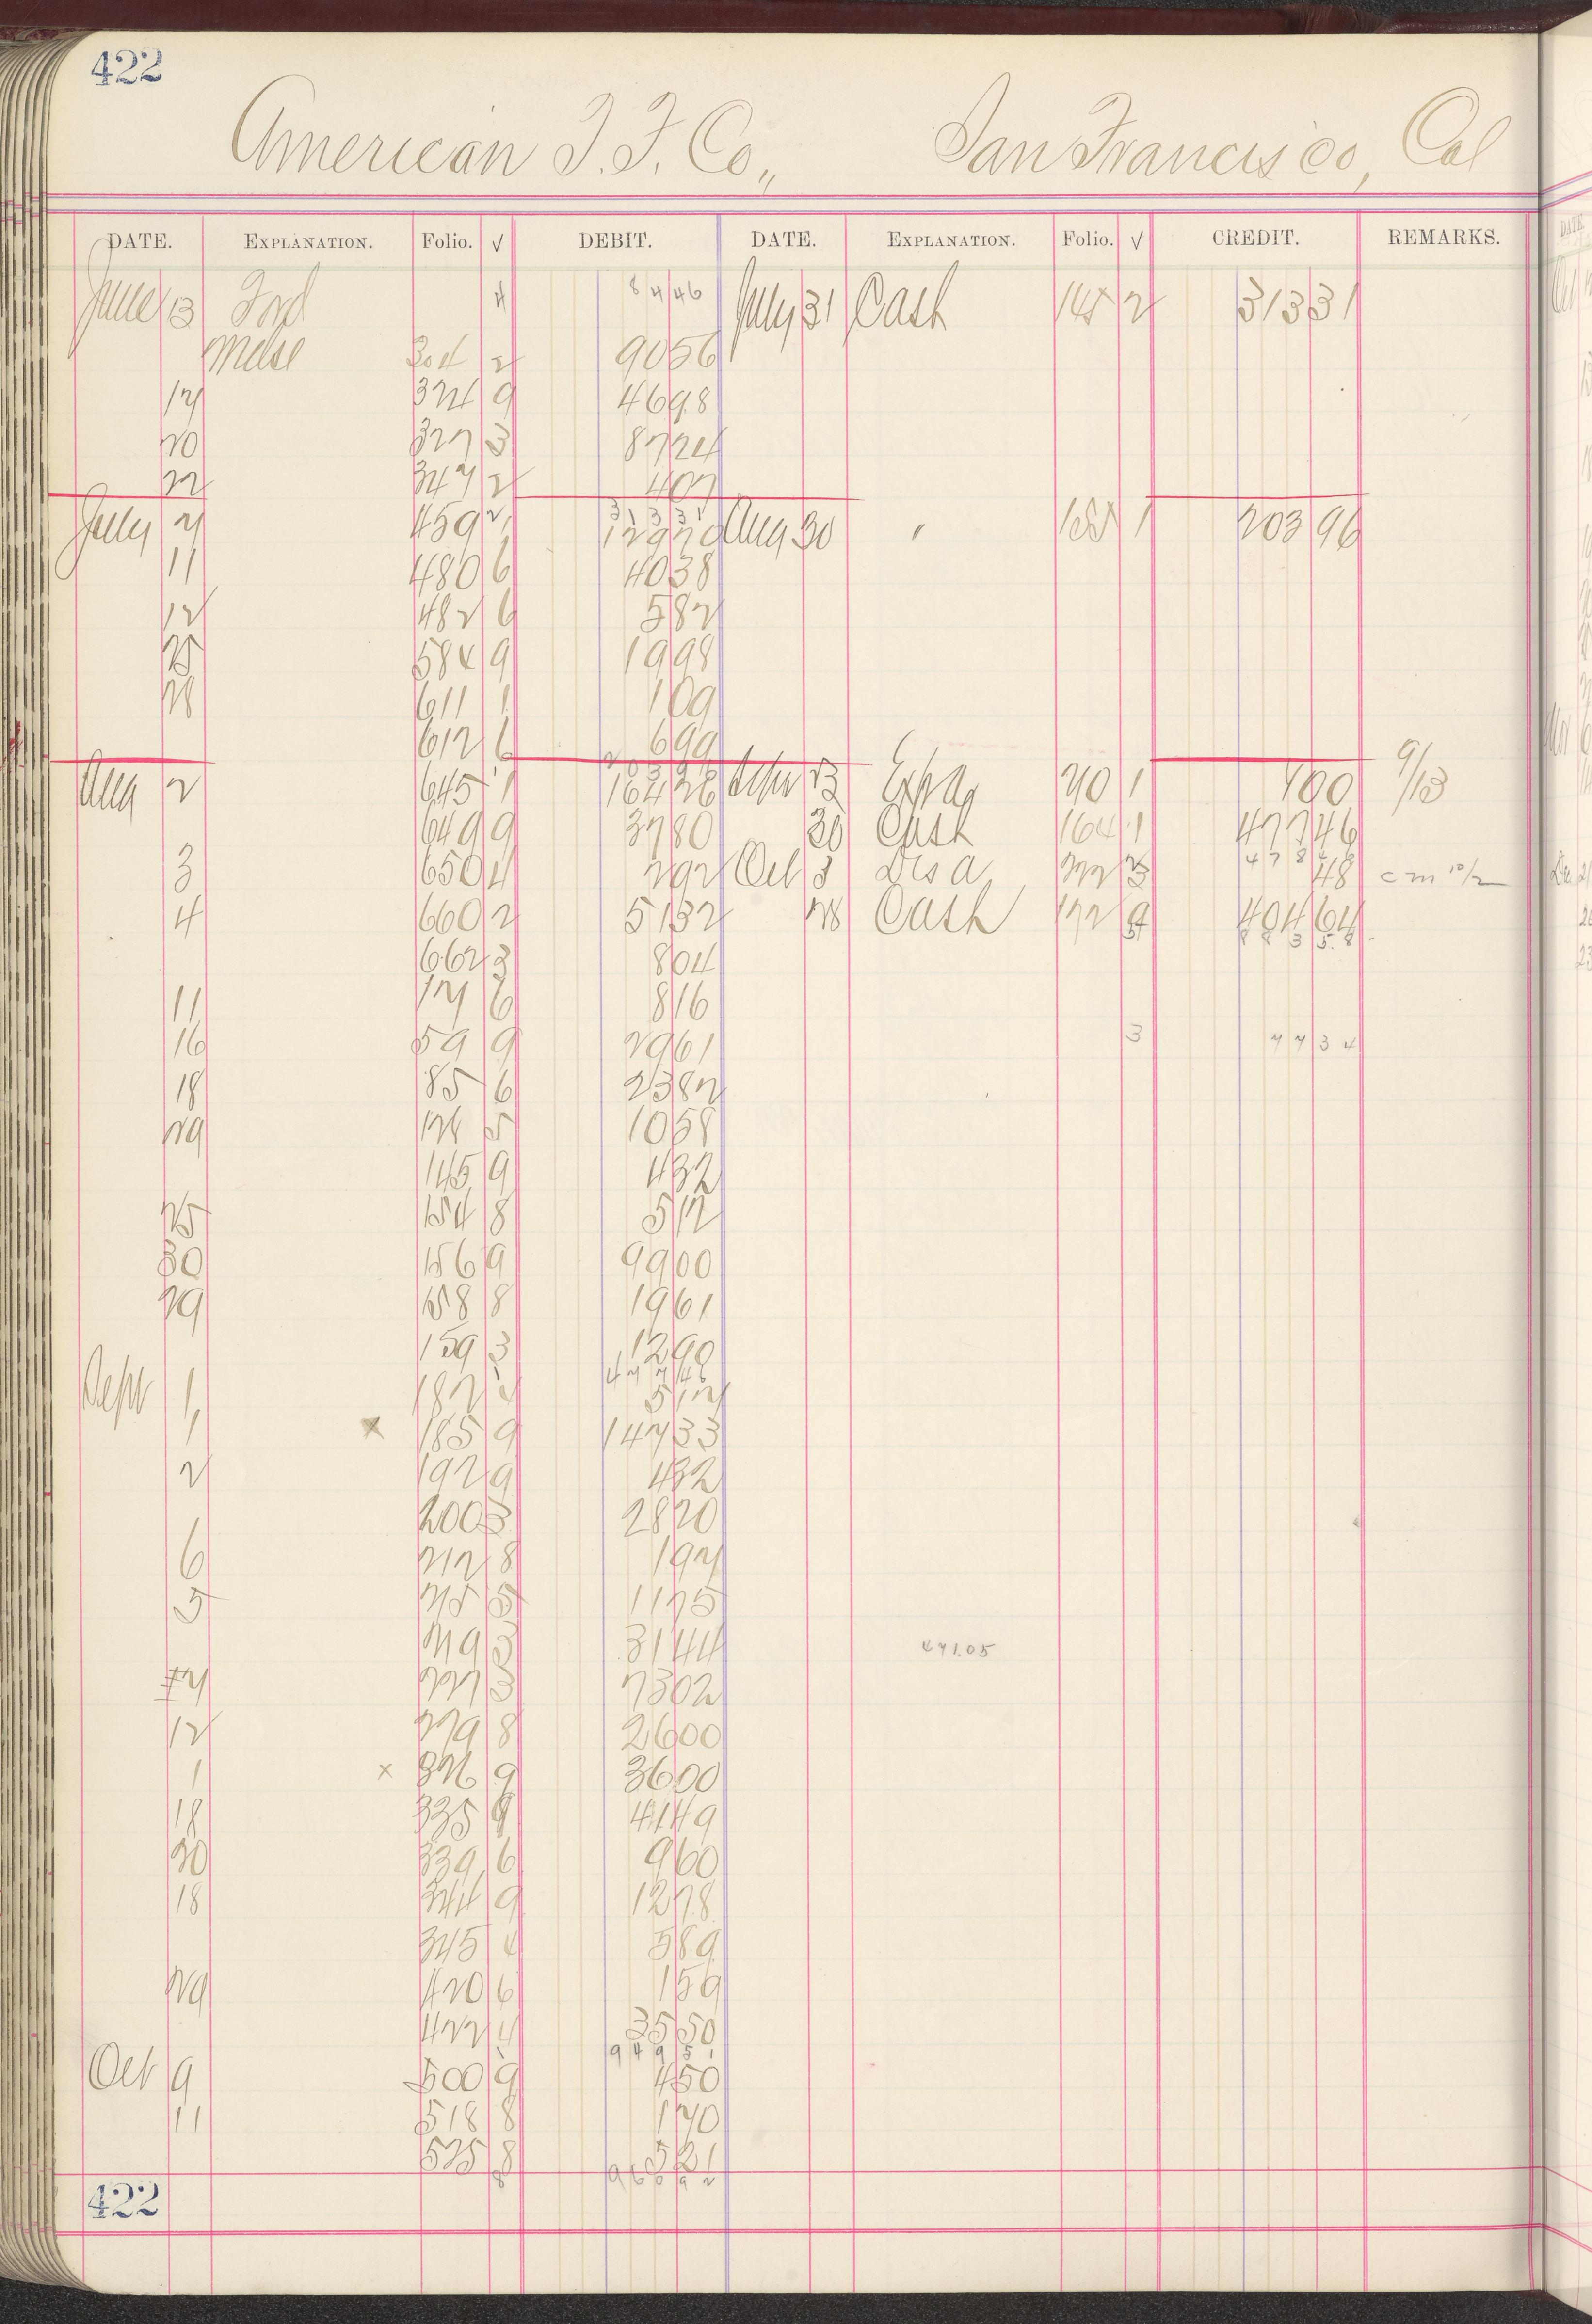 422
American F. F. Co., San Francisco, Cal
DATE. EXPLANATION. Folio. √ DEBIT. DATE. EXPLANATION. Folio. √ CREDIT. REMARKS.
June 13 Ford 4 84 46 July 31 Cash 145 2 313 31
Mdse 304 2 90 56
17 324 9 46 98
20 327 3 87 24
22 347 2 4 07
313 31
July 7 459 2 129 70 Aug 30 " 155 1 203 96
11 480 6 40 38
12 482 6 5 82
25 584 9 19 98
28 611 1 1 09
612 6 6 99
Aug 2 645 1 164 26 Sept 13 Exp a 20 1 1 00 9/13
649 9 37 80 30 Cash 164 1 477 46
478 46
3 650 4 2 92 Oct 3 Dis a 272 3 48 cm 10/2
4 660 2 51 32 28 Cash 172 9 404 64
662 3 8 04
11 17 6 8 16
16 59 9 29 61 3 77 34
18 85 6 23 82
29 126 5 10 58
145 9 4 32
25 154 8 5 12
30 156 9 99 00
29 158 8 19 61
159 3 12 90
477 46
Sept 1 182 5 12
x 185 9 147 33
2 192 9 4 32
200 3 28 20
6 212 8 1 97
5 215 5 11 75
219 3 31 44 471.05
227 3 73 02
12 279 8 26 00
1 x 326 9 36 00
18 335 9 41 49
20 339 6 9 60
18 344 9 12 78
345 4 5 89
29 420 6 1 59
422 4 35 50
949 51
Oct 9 500 9 4 50
11 518 8 1 70
525 8 5 21
960 92
422